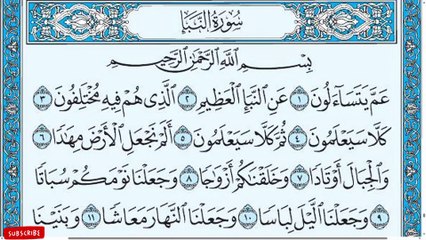 سُورَةُ النَّبَإِ
بِسْمِ اللَّهِ الرَّحْمَٰنِ الرَّحِيمِ
عَمَّ يَتَسَاءَلُونَ ١ عَنِ النَّبَإِ الْعَظِيمِ ٢ الَّذِي هُمْ فِيهِ مُخْتَلِفُونَ ٣
كَلَّا سَيَعْلَمُونَ ٤ ثُمَّ كَلَّا سَيَعْلَمُونَ ٥ أَلَمْ نَجْعَلِ الْأَرْضَ مِهَادًا ٦
وَالْجِبَالَ أَوْتَادًا ٧ وَخَلَقْنَاكُمْ أَزْوَاجًا ٨ وَجَعَلْنَا نَوْمَكُمْ سُبَاتًا
٩ وَجَعَلْنَا اللَّيْلَ لِبَاسًا ١٠ وَجَعَلْنَا النَّهَارَ مَعَاشًا ١١ وَبَنَيْنَا
SUBSCRIBE